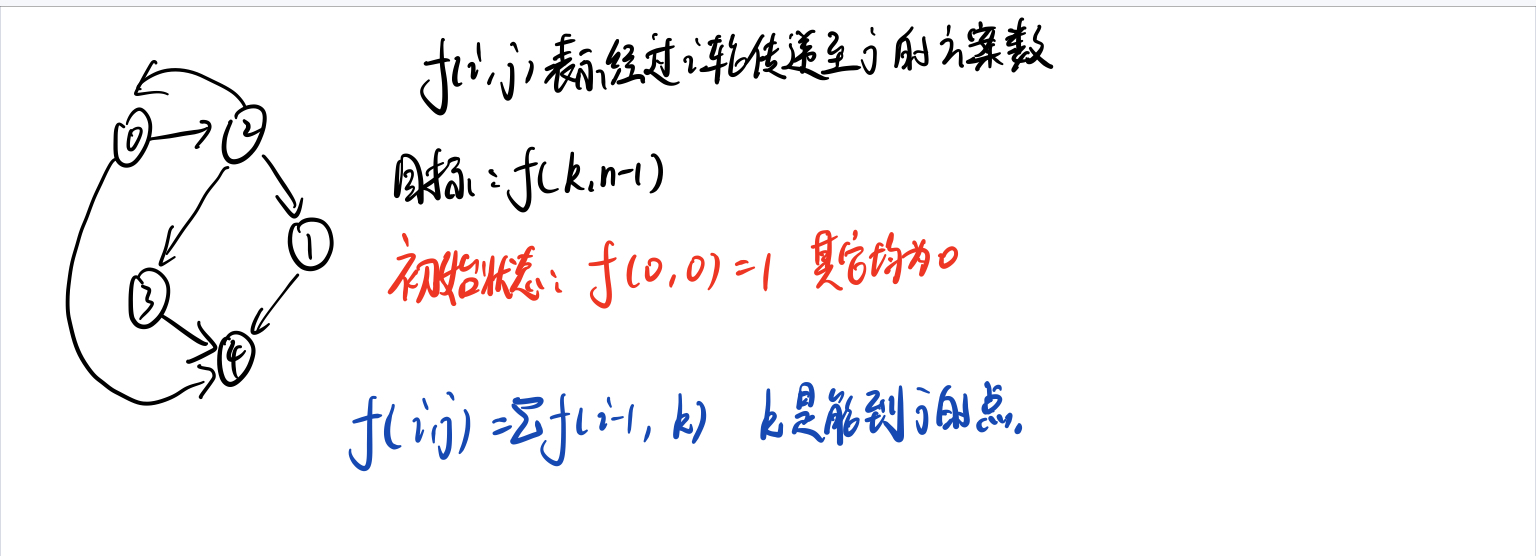 f(i,j)表示经过i轮传递至j的方案数
0
2
目标:f(k,n-1)
1
初始状态:f(0,0)=1 其它均为0
3
4
f(i,j)=Σf(i-1,k) k是能到j的点.